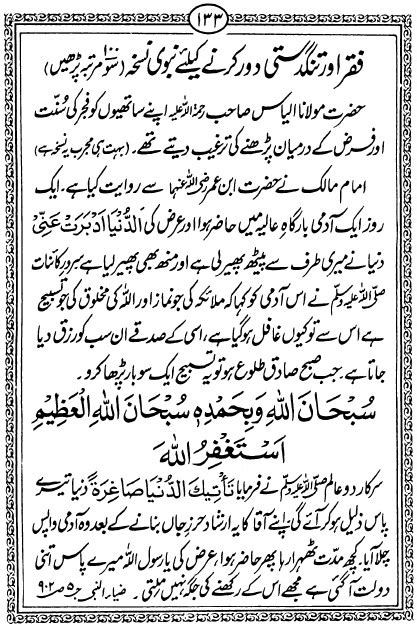 ۱۳۳
فقر اور تنگدستی دور کرنے کیلئے نبوی نسخہ (۱۰۰ سو مرتبہ پڑھیں)
حضرت مولانا الیاس صاحب رحمۃ اللہ علیہ اپنے ساتھیوں کو فجر کی سُنّت
اور فرض کے درمیان پڑھنے کی ترغیب دیتے تھے۔ (بہت ہی مجرب یہ نسخہ ہے)
امام مالک نے حضرت ابن عمر رضی اللہ عنہما سے روایت کیا ہے۔ ایک
روز ایک آدمی بارگاہِ عالیہ میں حاضر ہوا اور عرض کی اَلدُّنْیَا اَدْبَرَتْ عَنِّیْ
دنیا نے میری طرف سے پیٹھ پھیر لی ہے اور منہ بھی پھیر لیا ہے سرورِ کائنات
صلی اللہ علیہ وسلم نے اس آدمی کو کہا کہ ملائکہ کی جو نماز اور اللہ کی مخلوق کی جو تسبیح
ہے اس سے تو کیوں غافل ہو گیا ہے، اسی کے صدقے ان سب کو رزق دیا
جاتا ہے۔ جب صبح صادق طلوع ہو تو یہ تسبیح ایک سو بار پڑھا کرو۔
سُبْحَانَ اللهِ وَبِحَمْدِهٖ سُبْحَانَ اللهِ الْعَظِيْمِ
اَسْتَغْفِرُ اللهَ
سرکار دو عالم صلی اللہ علیہ وسلم نے فرمایا تَأْتِیْكَ الدُّنْیَا صَاغِرَةً دنیا تیرے
پاس ذلیل ہو کر آئے گی اپنے آقا کا یہ ارشاد حرزِ جاں بنانے کے بعد وہ آدمی واپس
چلا آیا۔ کچھ مدّت ٹھہرا رہا پھر حاضر ہوا، عرض کی یا رسول اللہ میرے پاس اتنی
دولت آگئی ہے مجھے اس کے رکھنے کی جگہ نہیں ملتی۔ ضیاء النبی ج ۵ ص ۹۰۲